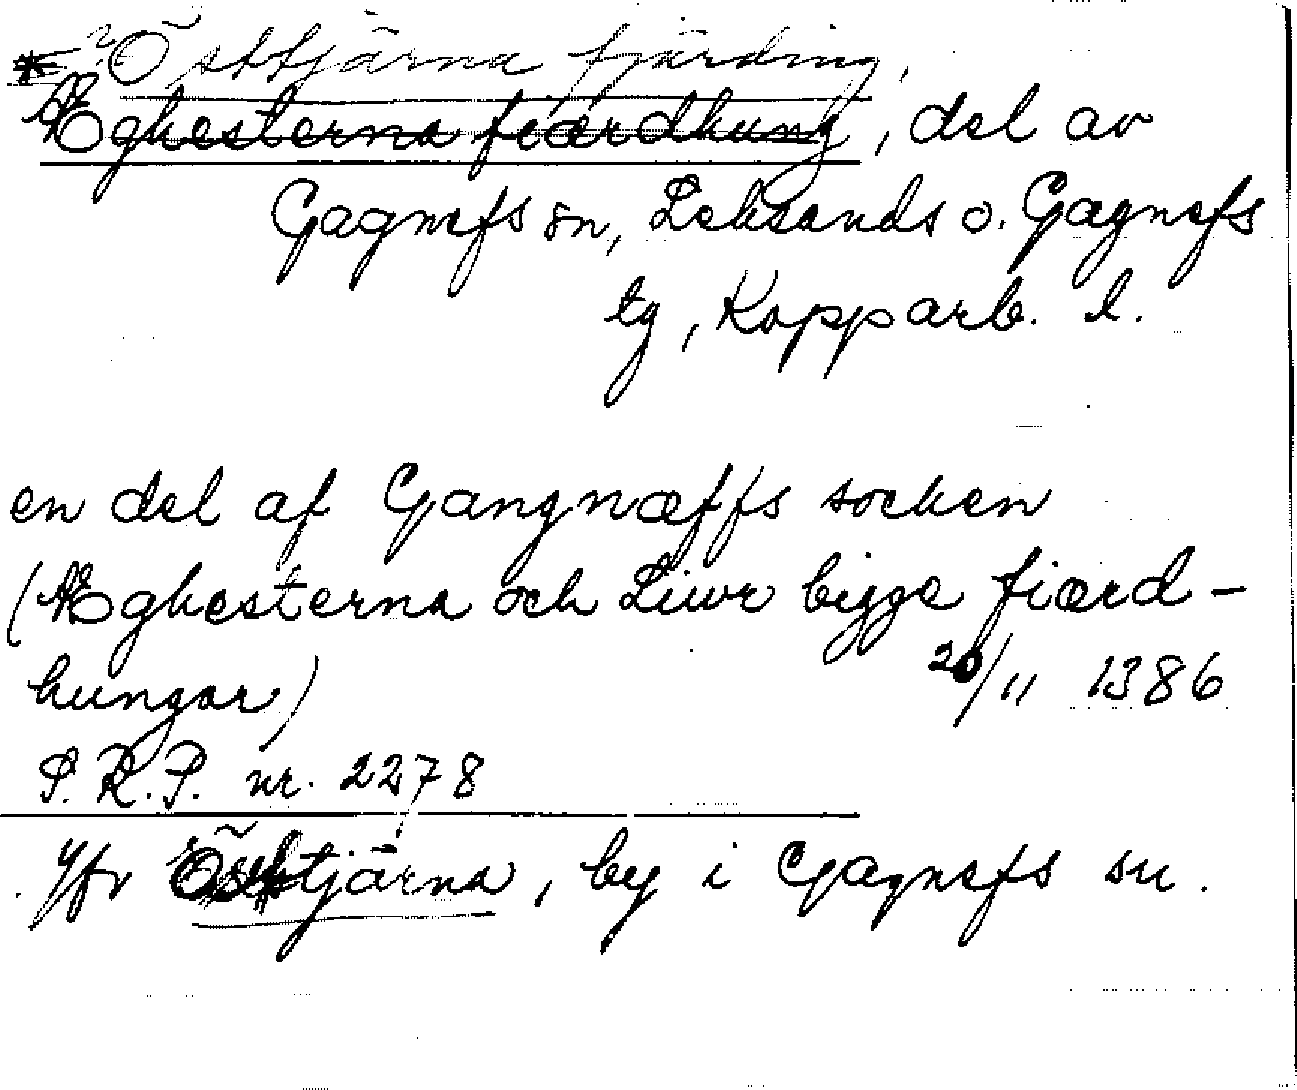 * ? Östtjärna fjärding,
Æghesterna fiærdhung, del av
Gagnefs sn, Leksands o. Gagnefs
tg, Kopparb. l.
en del af Gangnæffs socken
(Æghesterna och Liwr bigge fiærd-
hungar) 20/11 1386
S.R.P. nr. 2278
Jfr Östtjärna, by i Gagnefs sn.